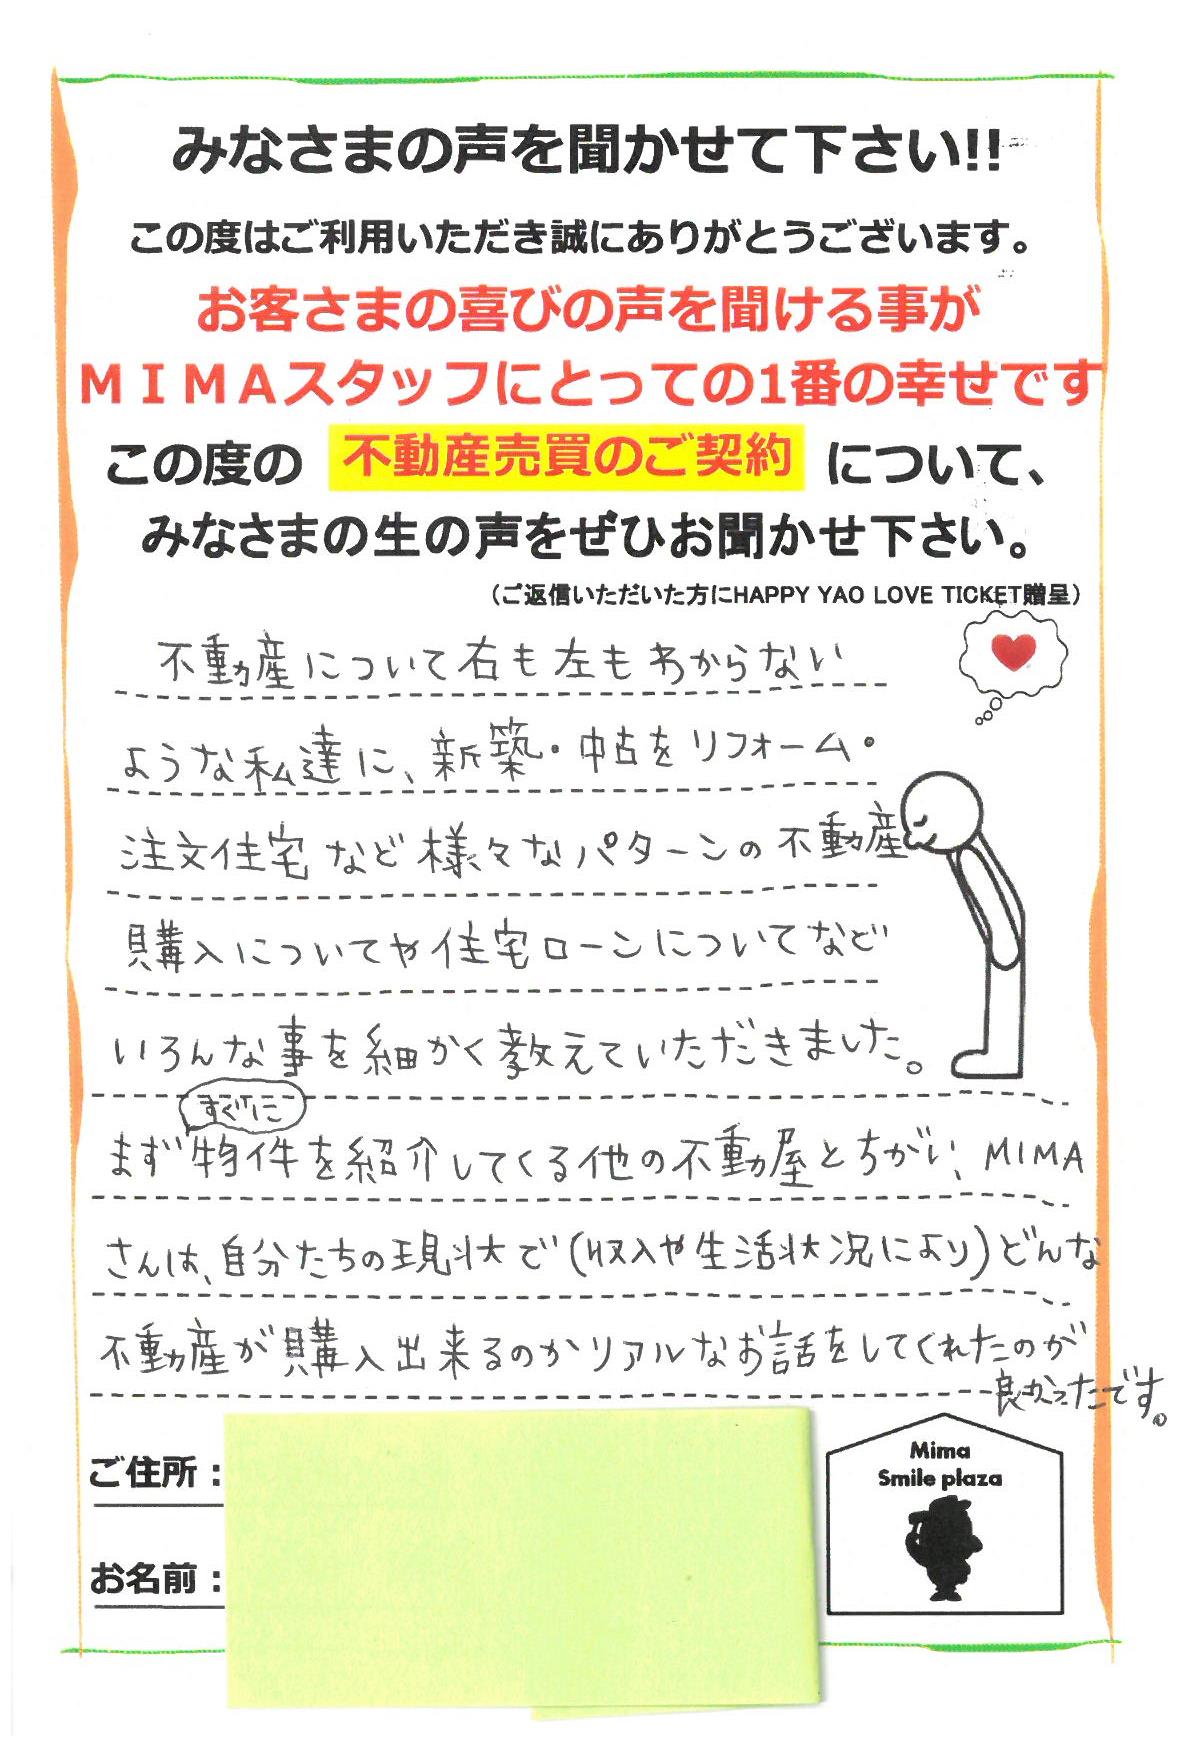 みなさまの声を聞かせて下さい!!
この度はご利用いただき誠にありがとうございます。
お客さまの喜びの声を聞ける事が
ＭＩＭＡスタッフにとっての1番の幸せです
この度の 不動産売買のご契約 について、
みなさまの生の声をぜひお聞かせ下さい。
（ご返信いただいた方にHAPPY YAO LOVE TICKET贈呈）
不動産について右も左もわからない
ような私達に、新築・中古をリフォーム・
注文住宅など様々なパターンの不動産
購入についてや住宅ローンについてなど
いろんな事を細かく教えていただきました。
すぐに
まず物件を紹介してくる他の不動屋とちがい、MIMA
さんは、自分たちの現状で(収入や生活状況により)どんな
不動産が購入出来るのかリアルなお話をしてくれたのが
良かったです。
ご住所：
Mima
Smile plaza
お名前：